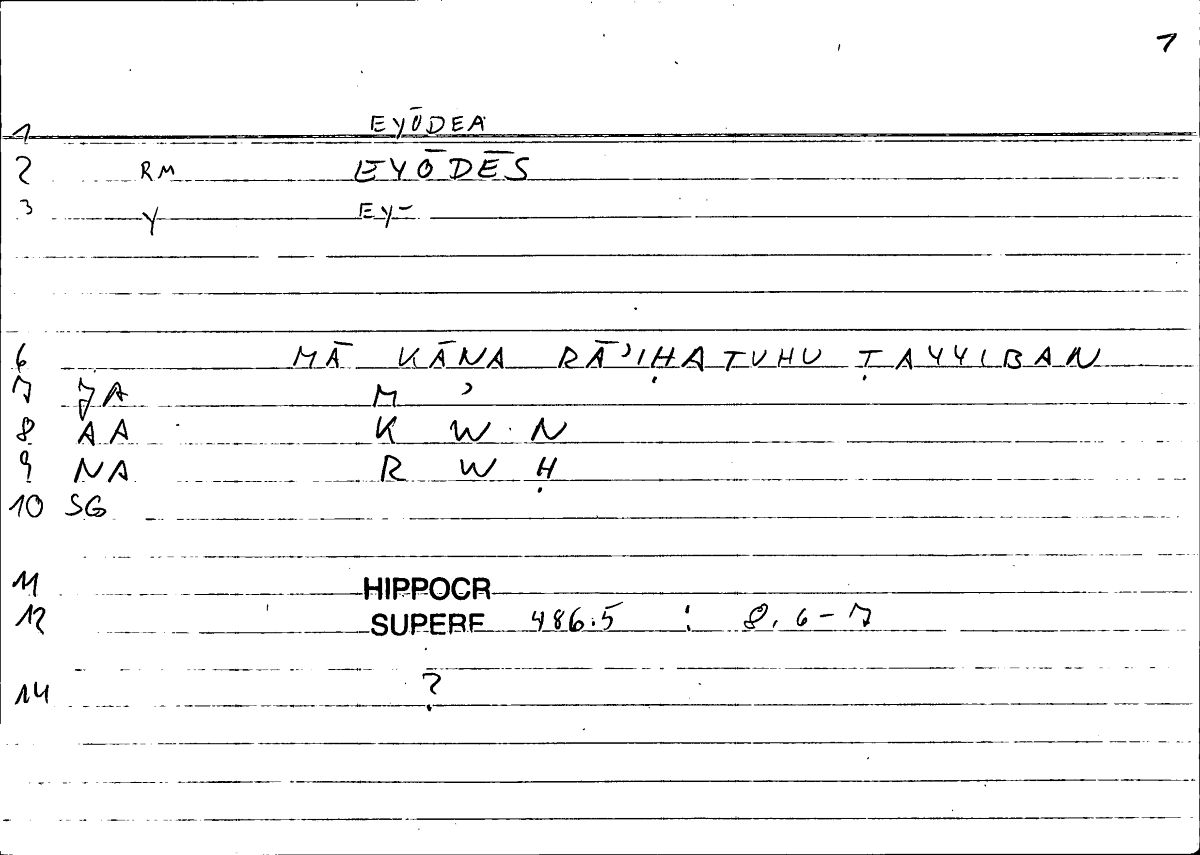 1
1 EYŌDEA
2 RM EYŌDĒS
3 Y EY-
6 MĀ KĀNA RĀʾIḤATUHU ṬAYYIBAN
7 JA M ʾ
8 AA K W N
9 NA R W Ḥ
10 SG
11 HIPPOCR
12 SUPERF 486.5 : 8, 6-7
14 ?